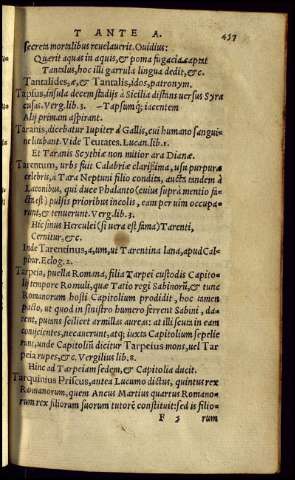 T ANTE A. 437
secreta mortalibus reuelauerit. Ouidius:
Quærit aquas in aquis, & poma fugacia captat
Tantalus, hoc illi garrula lingua dedit, &c.
Tantalides, æ, & Tantalis, idos, patronym.
Tapsus, insula decem stadijs à Sicilia distans uersus Syra
cusas. Verg. lib. 3. -Tapsumq; iacentem
Alij primam aspirant.
Taranis, dicebatur Iupiter à Gallis, cui humano sangui-
ne litabant. Vide Teutates. Lucan. lib. 1.
Et Taranis Scythiæ non mitior ara Dianæ.
Tarentum, urbs fuit Calabriæ clarissima, usu purpuræ
celebris, à Tara Neptuni filio condita, aucta tandem à
Laconibus, qui duce Phalanto (cuius suprà mentio fa-
cta est) pulsis prioribus incolis, eam per uim occupa-
runt, & tenuerunt. Verg. lib. 3.
Hic sinus Herculei (si uera est fama) Tarenti,
Cernitur, &c.
Inde Tarentinus, a, um, ut Tarentina lana, apud Cal-
phur. Eclog. 2.
Tarpeia, puella Romana, filia Tarpei custodis Capito-
lij tempore Romuli, quæ Tatio regi Sabinorū, & tunc
Romanorum hosti Capitolium prodidit, hoc tamen
pacto, ut quod in sinistro humero ferrent Sabini, da-
rent, putans scilicet armillas aureas: at illi scuta in eam
conijcientes, necauerunt, atq; iuxta Capitolium sepelie
runt, unde Capitoliū dicitur Tarpeius mons, uel Tar
peia rupes, &c. Vergilius lib. 8.
Hinc ad Tarpeiam sedem, & Capitolia ducit.
Tarquinius Priscus, antea Lucumo dictus, quintus rex
Romanorum, quem Ancus Martius quartus Romano-
rum rex filiorum suorum tutorē constituit: sed is filio-
F 3 rum